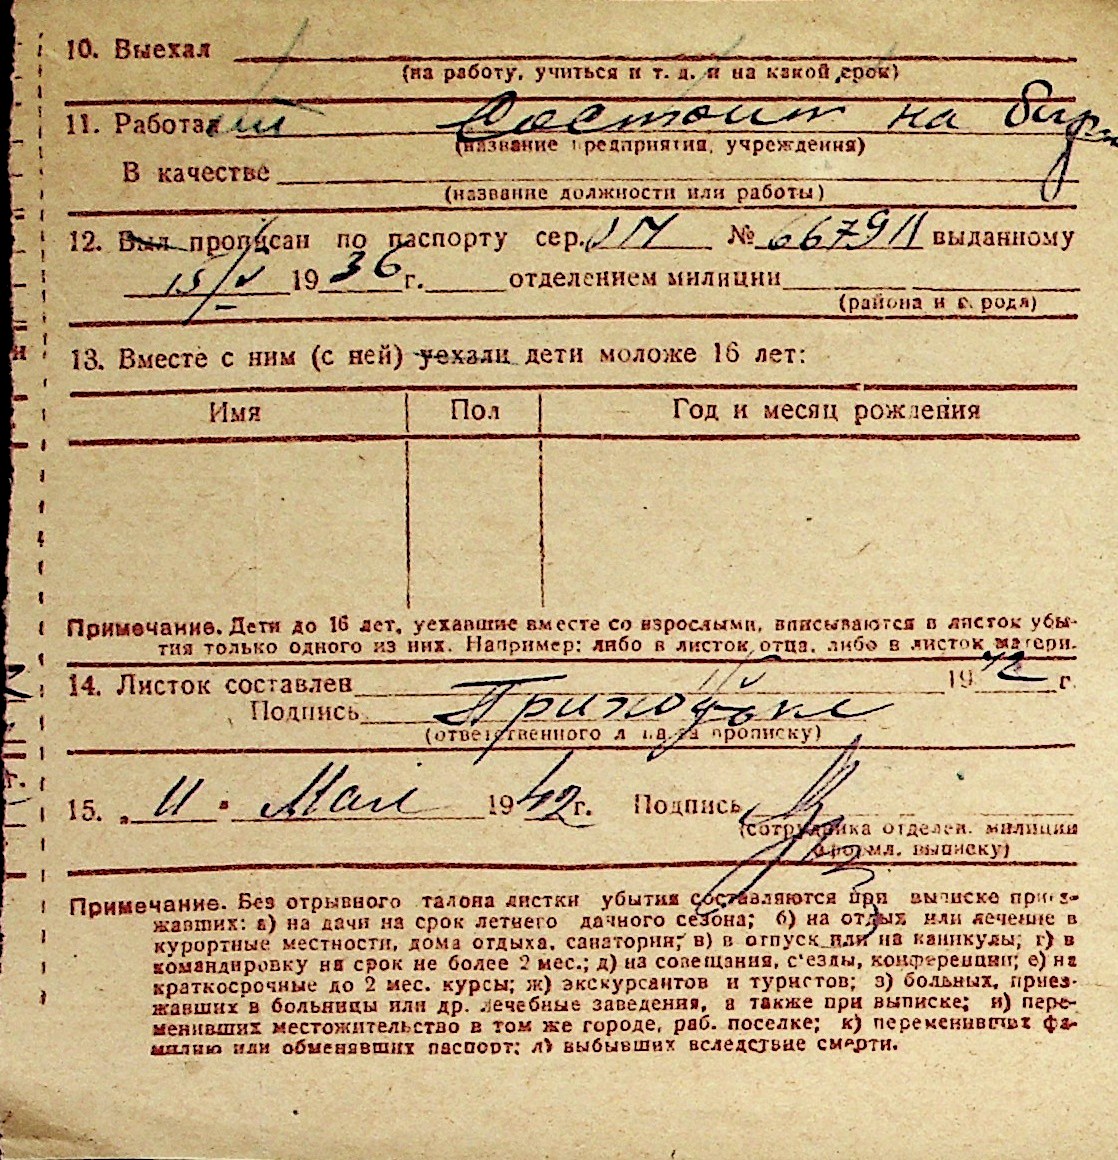 10. Выехал
(на работу, учиться и т. д. и на какой срок)
11. Работа Состоит на
(название предприятия, учреждения)
В качестве
(название должности или работы)
12. Был прописан по паспорту сер. № выданному
15/V 1936 г. отделением милиции
(района и города)
13. Вместе с ним (с ней) уехали дети моложе 16 лет:
Имя Пол Год и месяц рождения
Примечание. Дети до 16 лет, уехавшие вместе со взрослыми, вписываются в листок убы-
тия только одного из них. Например: либо в листок отца, либо в листок матери.
14. Листок составлен 1942 г.
Подпись
(ответственного лица за прописку)
15. „11" Мая 1942 г. Подпись
(сотрудника отделен. милиции
оформл. выписку)
Примечание. Без отрывного талона листки убытия составляются при выписке приез-
жавших: а) на дачи на срок летнего дачного сезона; б) на отдых или лечение в
курортные местности, дома отдыха, санатории; в) в отпуск или на каникулы; г) в
командировку на срок не более 2 мес.; д) на совещания, с'езды, конференции; е) на
краткосрочные до 2 мес. курсы; ж) экскурсантов и туристов; з) больных, приез-
жавших в больницы или др. лечебные заведения, а также при выписке; и) пере-
менивших местожительство в том же городе, раб. поселке; к) переменивших фа-
милию или обменявших паспорт; л) выбывших вследствие смерти.